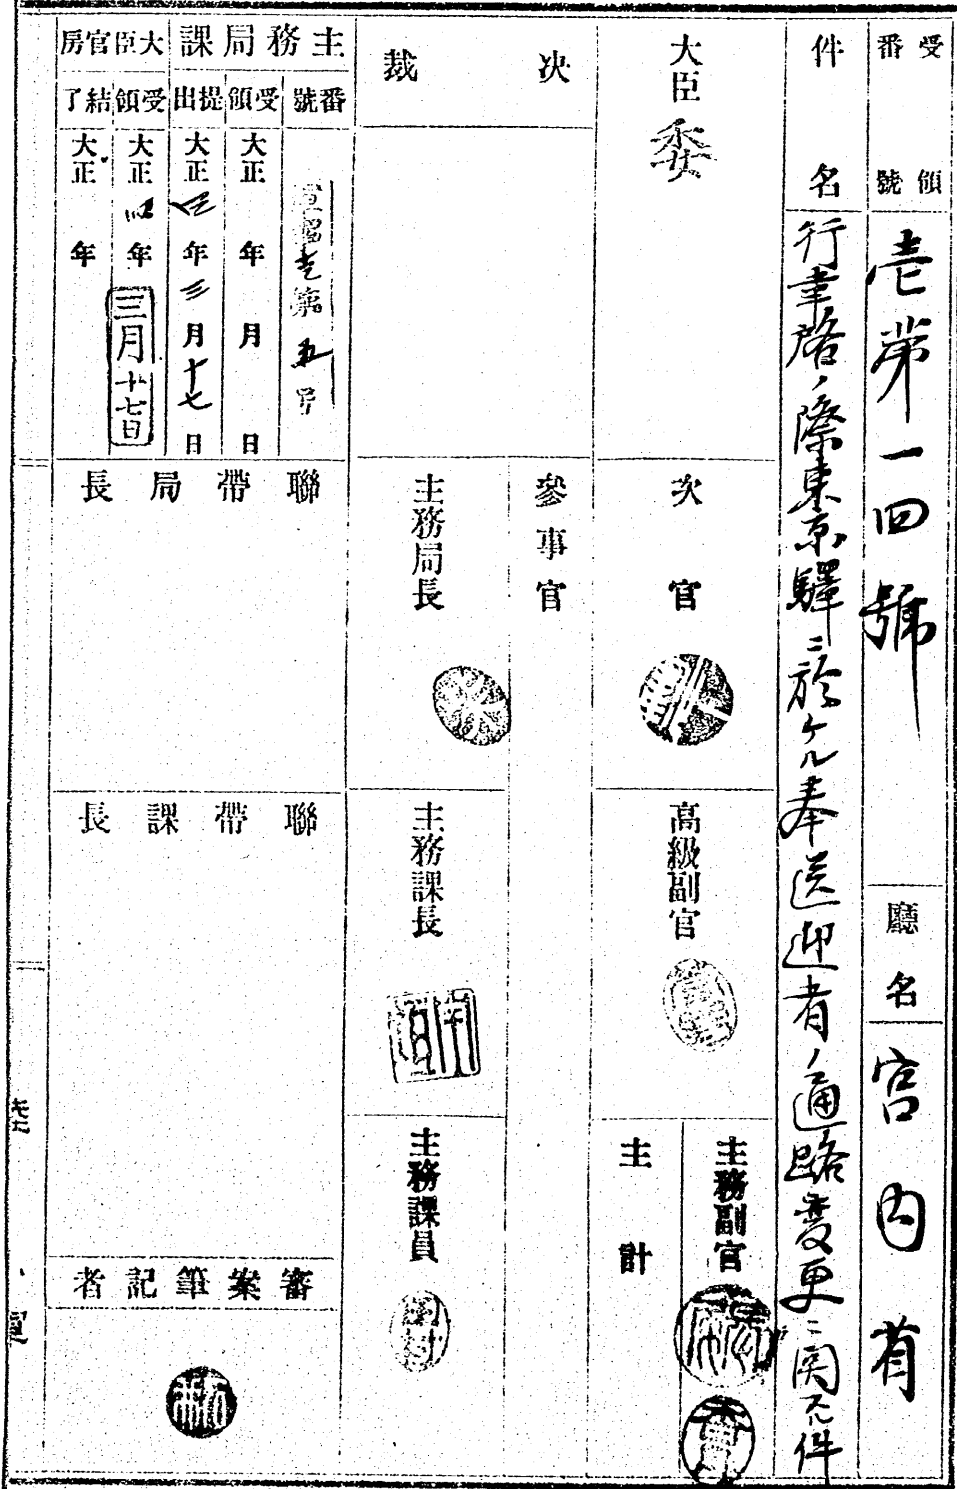 受領番號
壱第一四號
廳名
宮内省
件名
行幸啓ノ際東京驛ニ於ケル奉送迎者ノ通路変更ニ関スル件
大臣
委
次官
高級副官
主務副官
主計
決裁
參事官
主務局長
主務課長
主務課員
主務局課
番號
第五号
受領
大正 年 月 日
提出
大正四年三月十七日
大臣官房
受領
大正四年
三月十七日
結了
大正 年
聯帶局長
聯帶課長
審案筆記者